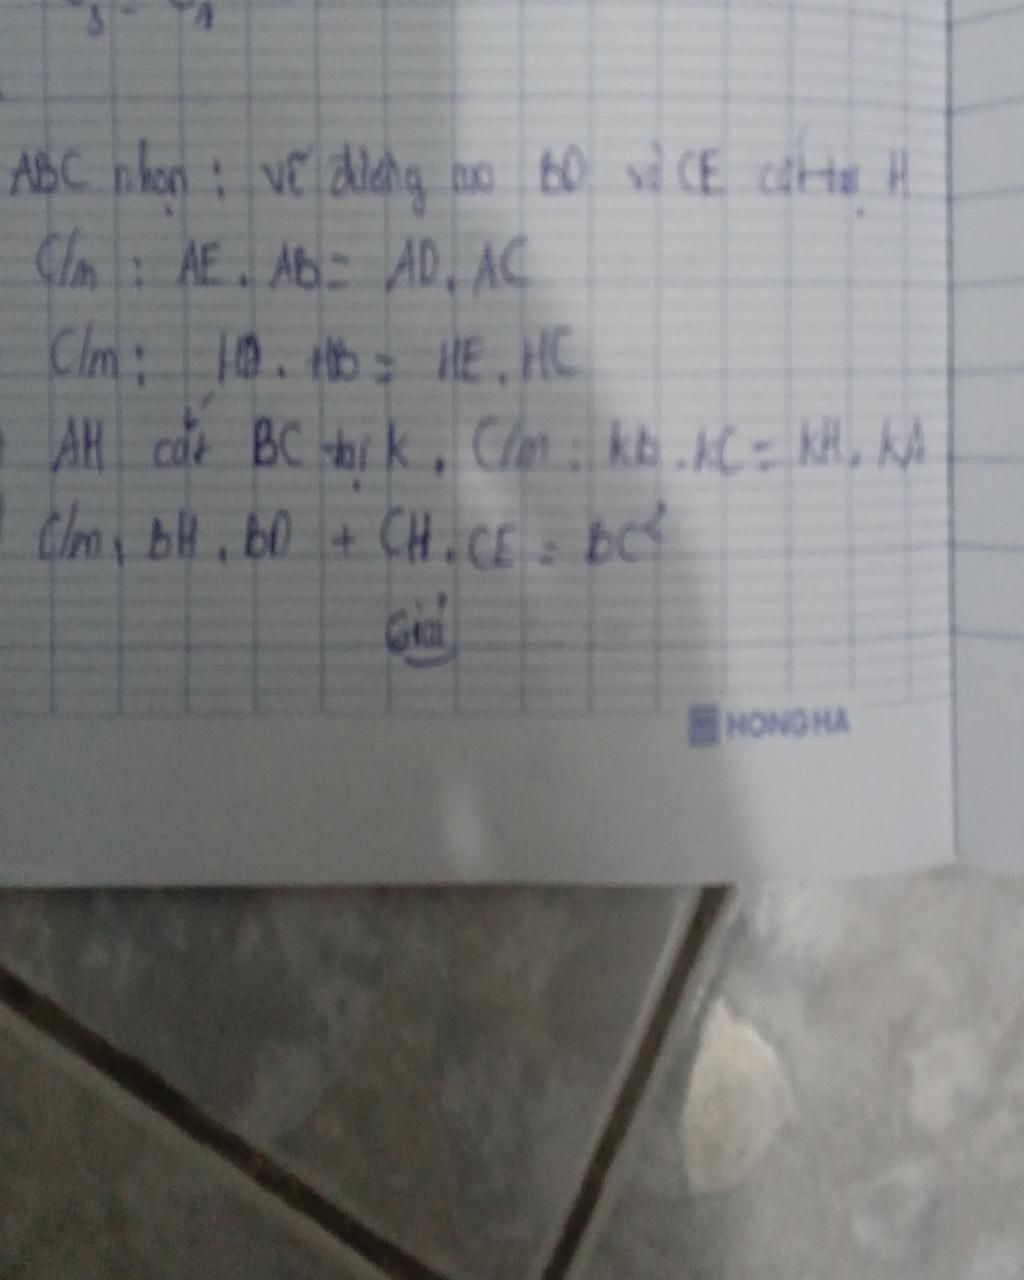 ABC nhọn : vẽ đường cao BD và CE cắt tại H
C/m : AE . AB = AD . AC
C/m : HD . HB = HE . HC
AH cắt BC tại K . C/m : KB . KC = KH . KA
C/m , BH . BD + CH . CE = BC²
Giải
HONG HA